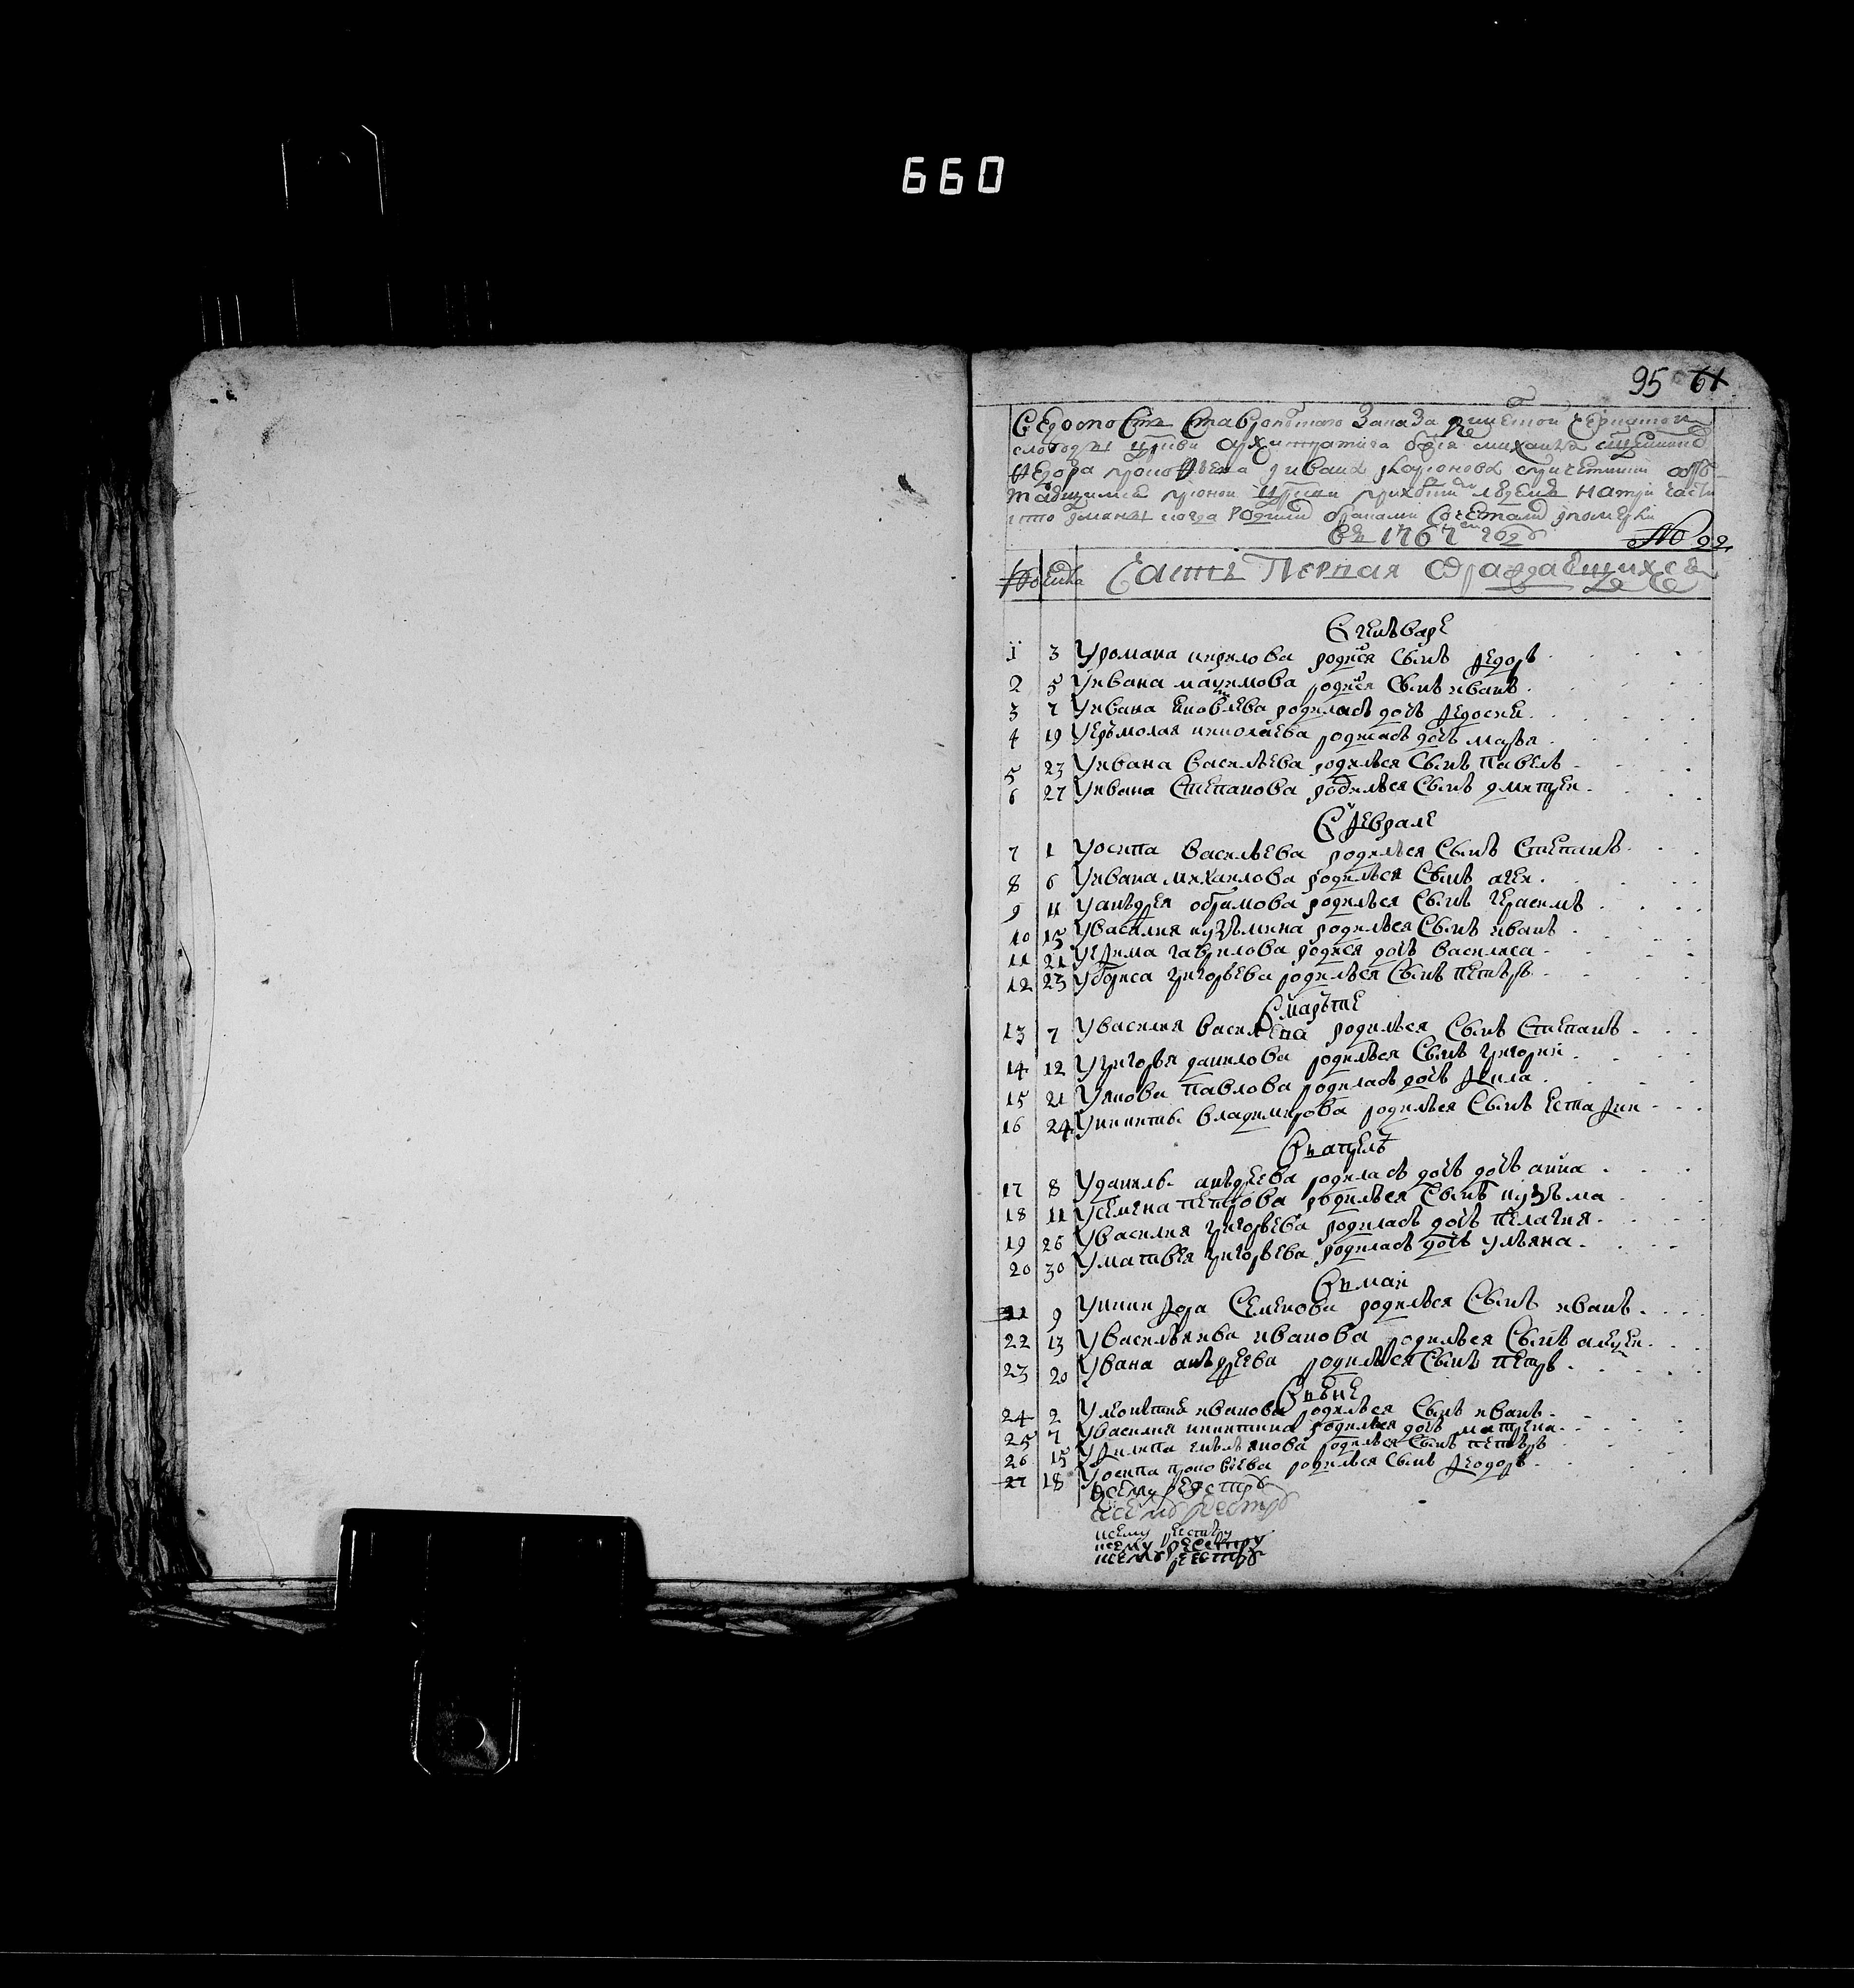 660
95 61
Ведомость Ставропольского Заказа
слободы церкви архистратига бжия михаила священника
федора ивана
приходским людем на три части
когда родились браками сочетались померли
въ 1767 году № 99
№ числа Часть Первая о раждающихся
В генъваре
1 3 У романа кирилова родися сынъ федоръ
2 5 У ивана маѯимова родися сынъ иванъ
3 7 У ивана яковлева родилась дочь федосия
4 19 У ерьмолая николаева родилась дочь марья
5 23 У ивана васильева родилъся сынъ павелъ
6 27 У ивана степанова родилъся сынъ дмитреи
В феврале
7 1 У осипа васильева родилъся сынъ степанъ
8 6 У ивана михаилова родилъся сынъ агеи
9 11 У анъдрея обрамова родилъся сынъ герасимъ
10 15 У василия кузъмина родилъся сынъ иванъ
11 21 У ефима гаврилова родися дочь василиса
12 23 У бориса григорьева родилъся сынъ петъръ
В маръте
13 7 У василия васильева родилъся сынъ степанъ
14 12 У григорья данилова родилъся сынъ григорий
15 21 У якова павлова родилась дочь фкила
16 24 У никиты владимирова родилъся сынъ естафии
Въ апрелѣ
17 8 У данилы анъдреева родилась дочь дочь анна
18 11 У семена петрова родилъся сынъ кузъма
19 26 У василия григорьева родилась дочь пелагия
20 30 У матвѣя григорьева родилась дочь ульяна
Въ маи
21 9 У никифора семенова родилъся сынъ иванъ
22 13 У васильянва иванова родилъся сынъ алеѯеи
23 20 У вана анъдреева родилъся сынъ петръ
Въ июне
24 2 У леонтия иванова родилъся сынъ иванъ
25 7 У василия никитина родилъся дочь матрена
26 15 У филипа емельянова родилъся сынъ петъръ
27 18 У осипа прокофева родилъся сынъ феодоръ
к сему реестру
к сему реестру
к сему реестру
к сему реестру
к сему реестру